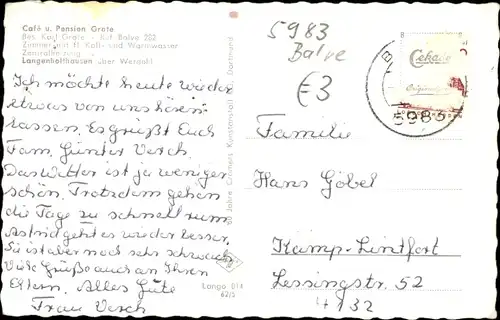 Café u. Pension Grote
Bes. Karl Grote - Ruf Balve 282
Zimmer mit fl. Kalt- und Warmwasser
Zentralheizung
Langenholthausen über Werdohl
Ich möchte heute wieder
etwas von uns hören
lassen. Es grüßt Euch
Fam. Günter Vesch.
Das Wetter ist ja weniger
schön. Trotzdem gehen
die Tage zu schnell rum
Astrid geht es wieder besser,
Sie ist aber noch sehr schwach
Viele Grüße auch an Ihren
Eltern. Alles Gute
Frau Vesch
Jahre Cramers Kunstanstalt Dortmund
Lango 814
62/5
5983
Balve
3
Familie
Hans Göbel
Kamp-Lintfort
Lessingstr. 52
4132
Cekade
Original
5983